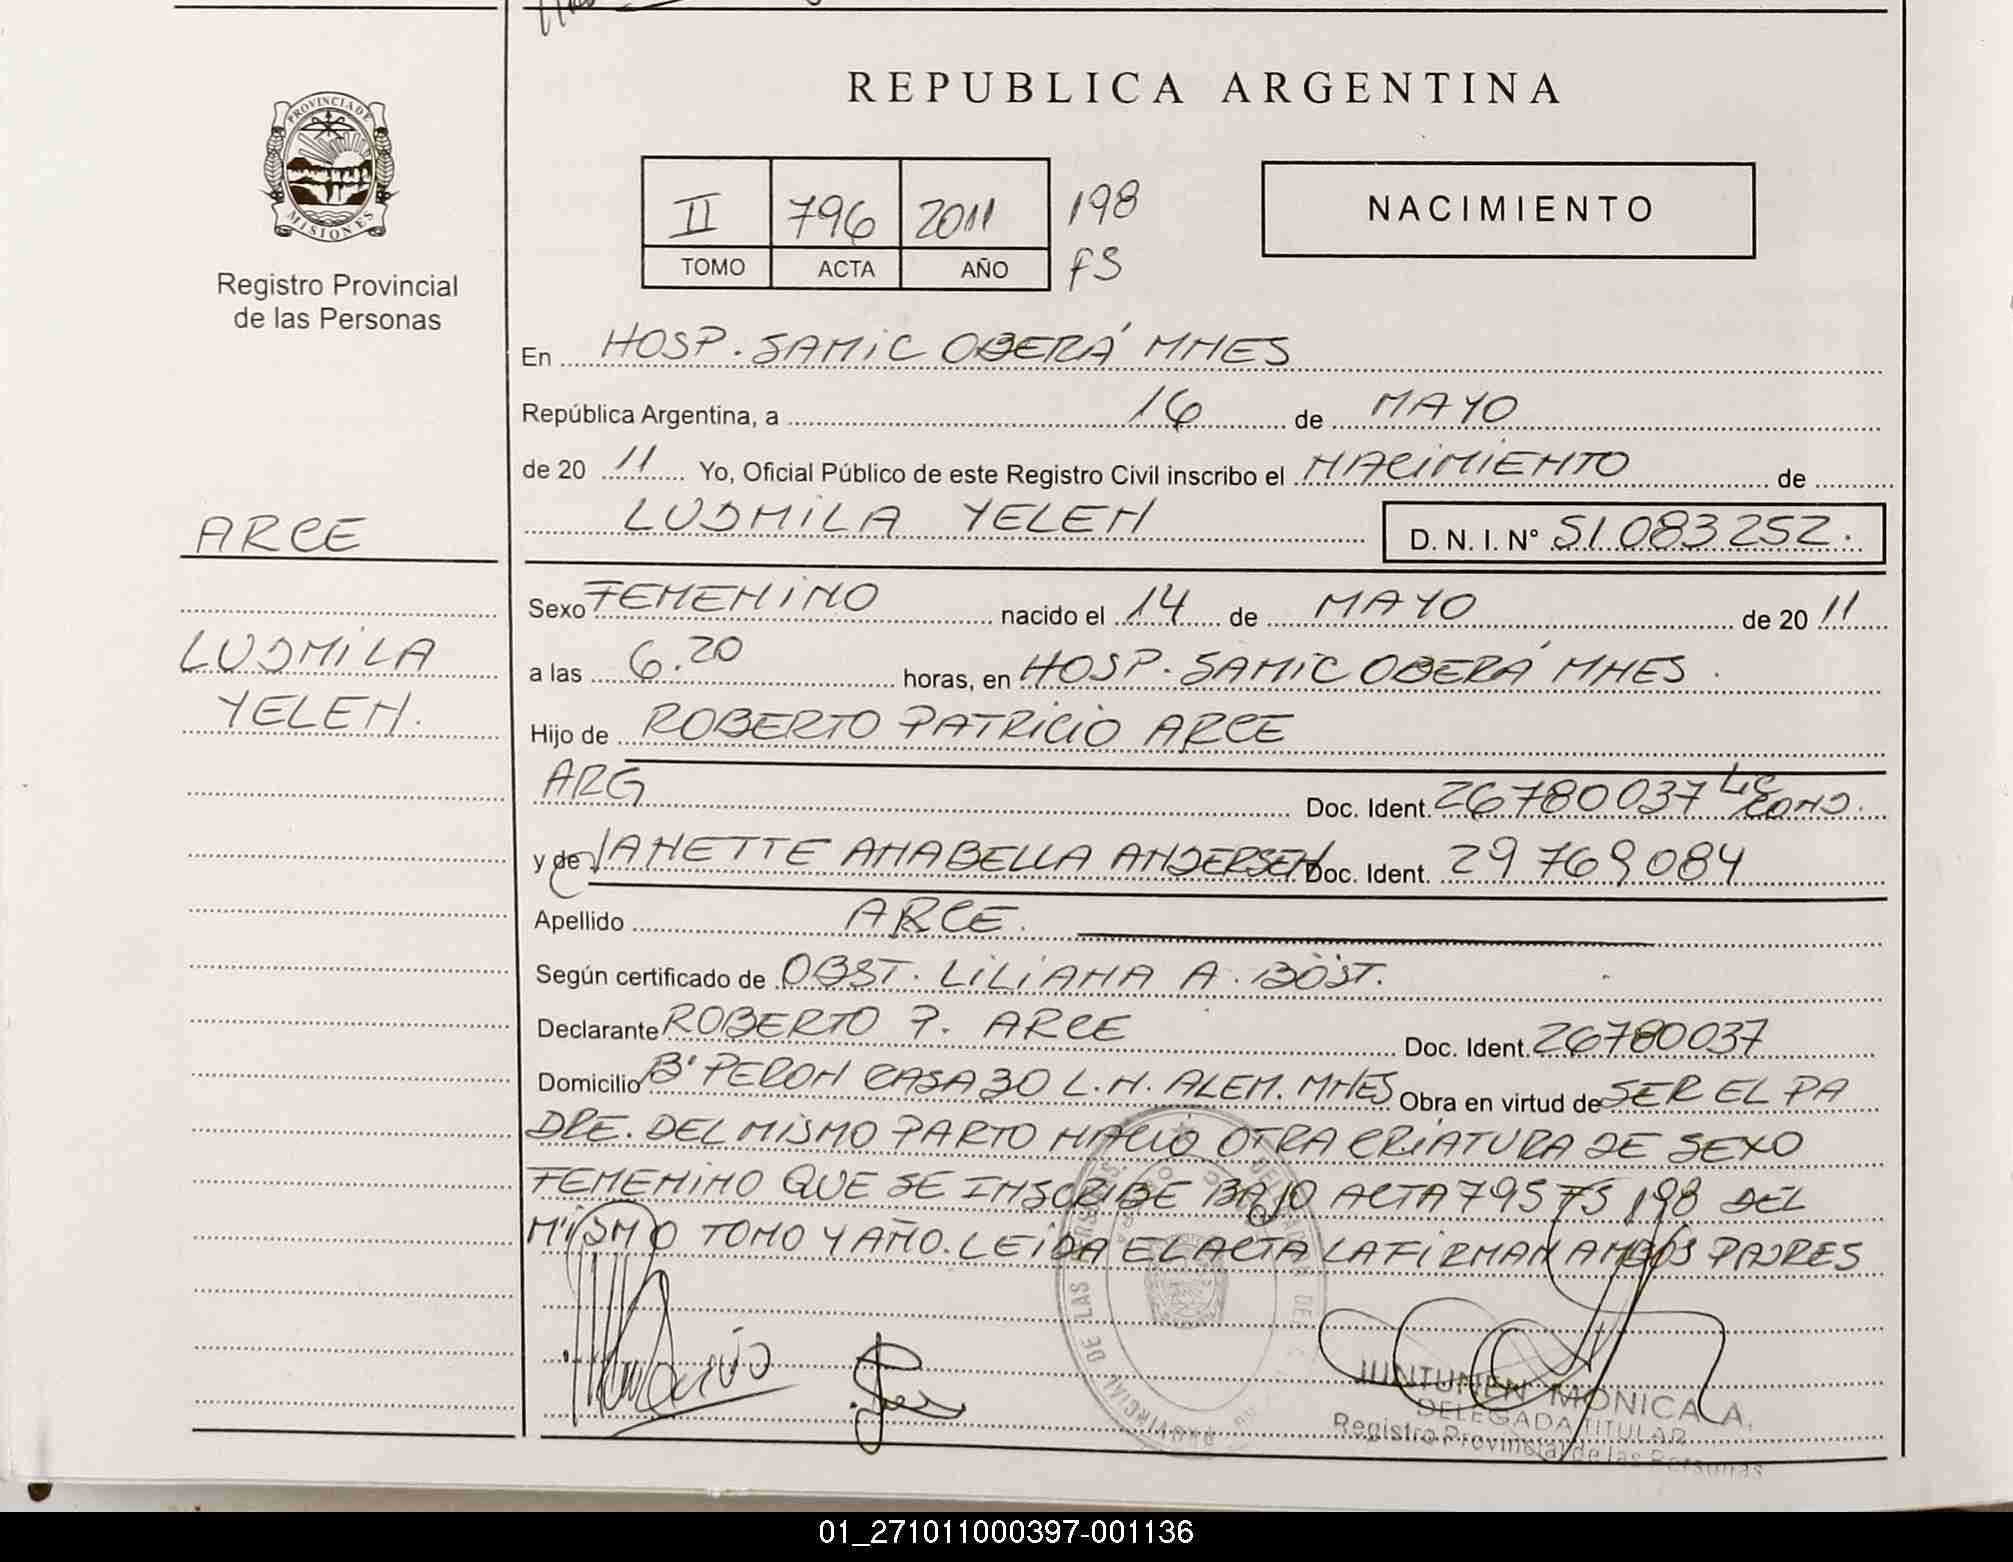 REPUBLICA ARGENTINA
PROVINCIA DE
MISIONES
Registro Provincial
de las Personas
II 796 2011 198
TOMO ACTA AÑO FS
NACIMIENTO
En HOSP. SAMIC OBERÁ MNES
República Argentina, a 16 de MAYO
de 20 11 Yo, Oficial Público de este Registro Civil inscribo el NACIMIENTO de
LUDMILA YELEN D. N. I. N° 51.083.252.
ARCE
LUDMILA
YELEN.
Sexo FEMENINO nacido el 14 de MAYO de 20 11
a las 6.20 horas, en HOSP. SAMIC OBERÁ MNES
Hijo de ROBERTO PATRICIO ARCE
ARG Doc. Ident. 26780037
y de JANETTE ANABELLA ANDERSEN Doc. Ident. 29769084
Apellido ARCE.
Según certificado de OBST. LILIANA A. BÖST.
Declarante ROBERTO P. ARCE Doc. Ident. 26780037
Domicilio B° PERON CASA 30 L.N. ALEM. MNES Obra en virtud de SER EL PA
DRE. DEL MISMO PARTO NACIO OTRA CRIATURA DE SEXO
FEMENINO QUE SE INSCRIBE BAJO ACTA 795 FS 198 DEL
MISMO TOMO Y AÑO. LEIDA EL ACTA LA FIRMAN AMBOS PADRES
JUNTUNEN MONICA A.
DELEGADA TITULAR
Registro Provincial de las Personas
01_271011000397-001136